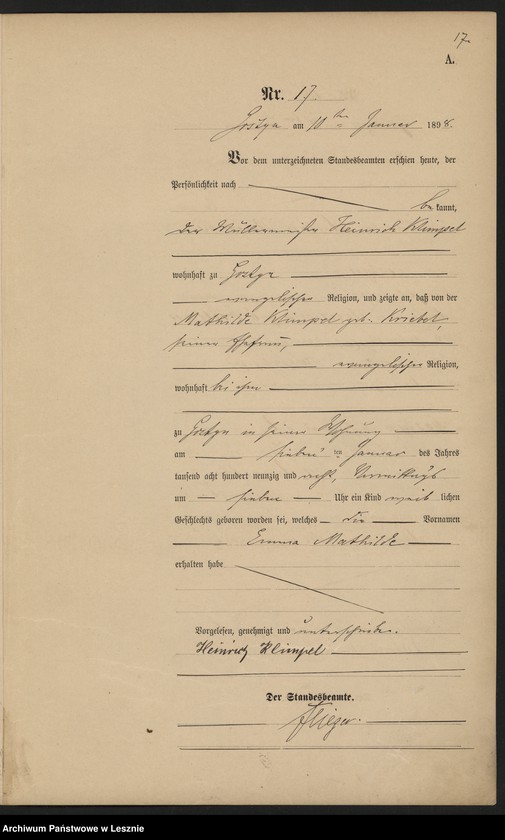 17.
A.
Nr. 17.
Gostyn am 10ten Januar 1898.
Vor dem unterzeichneten Standesbeamten erschien heute, der
Persönlichkeit nach
bekannt,
der Müllermeister Heinrich Klimpel
wohnhaft zu Gostyn
evangelischer Religion, und zeigte an, daß von der
Mathilde Klimpel geb. Kriebel,
seiner Ehefrau,
evangelischer Religion,
wohnhaft bei ihm
zu Gostyn in seiner Wohnung
am sieben ten Januar des Jahres
tausend acht hundert neunzig und acht, Vormittags
um sieben Uhr ein Kind weib lichen
Geschlechts geboren worden sei, welches die Vornamen
Emma Mathilde
erhalten habe
Vorgelesen, genehmigt und unterschrieben.
Heinrich Klimpel
Der Standesbeamte.
Flieger.
Archiwum Państwowe w Lesznie